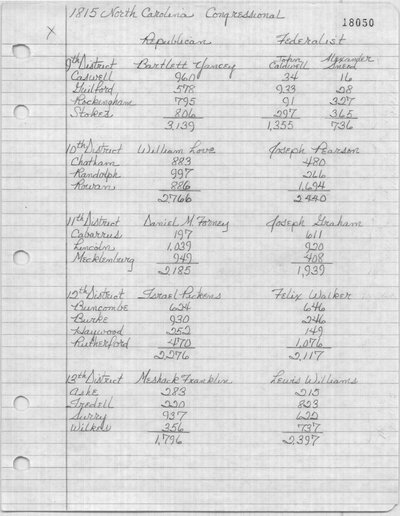 1815 North Carolina Congressional
18050
X
Republican Federalist
9th District Bartlett Yancey John Caldwell Alexander Sneed
Caswell 960 34 16
Guilford 578 933 28
Rockingham 795 91 327
Stokes 806 297 365
3,139 1,355 736
10th District William Love Joseph Pearson
Chatham 883 480
Randolph 997 266
Rowan 886 1,694
2766 2440
11th District Daniel M. Forney Joseph Graham
Cabarrus 197 611
Lincoln 1,039 920
Mecklenburg 949 408
2185 1,939
12th District Israel Pickens Felix Walker
Buncombe 624 646
Burke 930 246
Haywood 252 149
Rutherford 470 1,076
2,276 2,117
13th District Meshack Franklin Lewis Williams
Ashe 283 215
Iredell 220 823
Surry 937 622
Wilkes 356 737
1,796 2,397